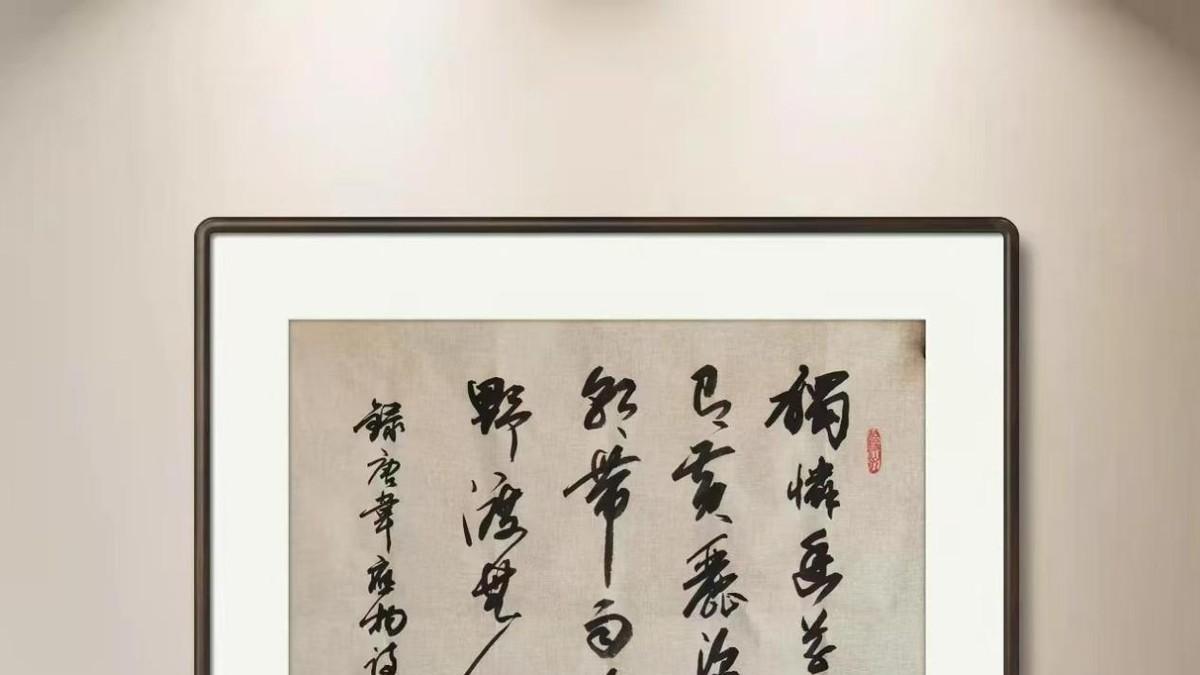 獨憐幽草
有黃鸝深
潮帶雨
野渡無
錄唐韋應物詩